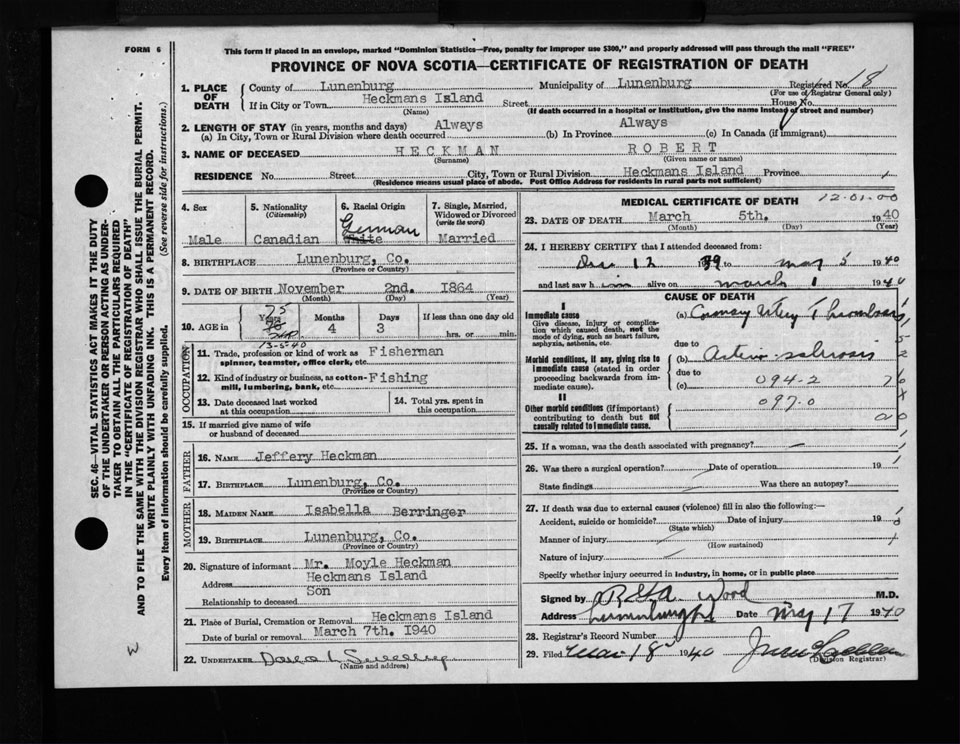 FORM 6
This form if placed in an envelope, marked "Dominion Statistics—Free, penalty for improper use $300," and properly addressed will pass through the mail "FREE"
PROVINCE OF NOVA SCOTIA—CERTIFICATE OF REGISTRATION OF DEATH
1. PLACE OF DEATH
County of Lunenburg Municipality of Lunenburg Registered No. 18
(For use of Registrar General only)
If in City or Town Heckmans Island Street House No.
(Name) (If death occurred in a hospital or institution, give the name instead of street and number)
2. LENGTH OF STAY (in years, months and days)
(a) In City, Town or Rural Division where death occurred Always (b) In Province Always (c) In Canada (if immigrant)
3. NAME OF DECEASED HECKMAN ROBERT
(Surname) (Given name or names)
RESIDENCE No. Street City, Town or Rural Division Heckmans Island Province
(Residence means usual place of abode. Post Office Address for residents in rural parts not sufficient)
4. Sex
Male
5. Nationality
(Citizenship)
Canadian
6. Racial Origin
German
White
7. Single, Married, Widowed or Divorced
(write the word)
Married
8. BIRTHPLACE Lunenburg, Co.
(Province or Country)
9. DATE OF BIRTH November 2nd. 1864
(Month) (Day) (Year)
10. AGE in
75
Years Months Days If less than one day old
4 3
hrs. or min.
13-5-40
OCCUPATION
11. Trade, profession or kind of work as Fisherman
spinner, teamster, office clerk, etc.
12. Kind of industry or business, as cotton- Fishing
mill, lumbering, bank, etc.
13. Date deceased last worked at this occupation
14. Total yrs. spent in this occupation
15. If married give name of wife or husband of deceased
FATHER
16. NAME Jeffery Heckman
17. BIRTHPLACE Lunenburg, Co.
(Province or Country)
MOTHER
18. MAIDEN NAME Isabella Berringer
19. BIRTHPLACE Lunenburg, Co.
(Province or Country)
20. Signature of informant Mr. Moyle Heckman
Address Heckmans Island
Relationship to deceased Son
21. Place of Burial, Cremation or Removal Heckmans Island
Date of burial or removal March 7th. 1940
22. UNDERTAKER
(Name and address)
MEDICAL CERTIFICATE OF DEATH
12-01-00
23. DATE OF DEATH March 5th. 1940
(Month) (Day) (Year)
24. I HEREBY CERTIFY that I attended deceased from:
Dec 12 1939 to 5 1940
and last saw him alive on March 1 1940
CAUSE OF DEATH
I
Immediate cause
Give disease, injury or complication which caused death, not the mode of dying, such as heart failure, asphyxia, asthenia, etc.
(a) Coronary Artery Thrombosis
due to
Morbid conditions, if any, giving rise to immediate cause (stated in order proceeding backwards from immediate cause).
(b)
due to
(c) 094-2
II
Other morbid conditions (if important) contributing to death but not causally related to immediate cause.
097.0
25. If a woman, was the death associated with pregnancy?
26. Was there a surgical operation? Date of operation 19
State findings Was there an autopsy?
27. If death was due to external causes (violence) fill in also the following:—
Accident, suicide or homicide? Date of injury 19
(State which)
Manner of injury
(How sustained)
Nature of injury
Specify whether injury occurred in industry, in home, or in public place
Signed by Wood M.D.
Address Date 17 1940
28. Registrar's Record Number
29. Filed Mar 18 1940
(Division Registrar)
SEC. 46—VITAL STATISTICS ACT MAKES IT THE DUTY
OF THE UNDERTAKER OR PERSON ACTING AS UNDER-
TAKER TO OBTAIN ALL THE PARTICULARS REQUIRED
IN THE "CERTIFICATE OF REGISTRATION OF DEATH"
AND TO FILE THE SAME WITH THE DIVISION REGISTRAR WHO SHALL ISSUE THE BURIAL PERMIT.
WRITE PLAINLY WITH UNFADING INK. THIS IS A PERMANENT RECORD.
Every item of information should be carefully supplied. (See reverse side for instructions.)
W